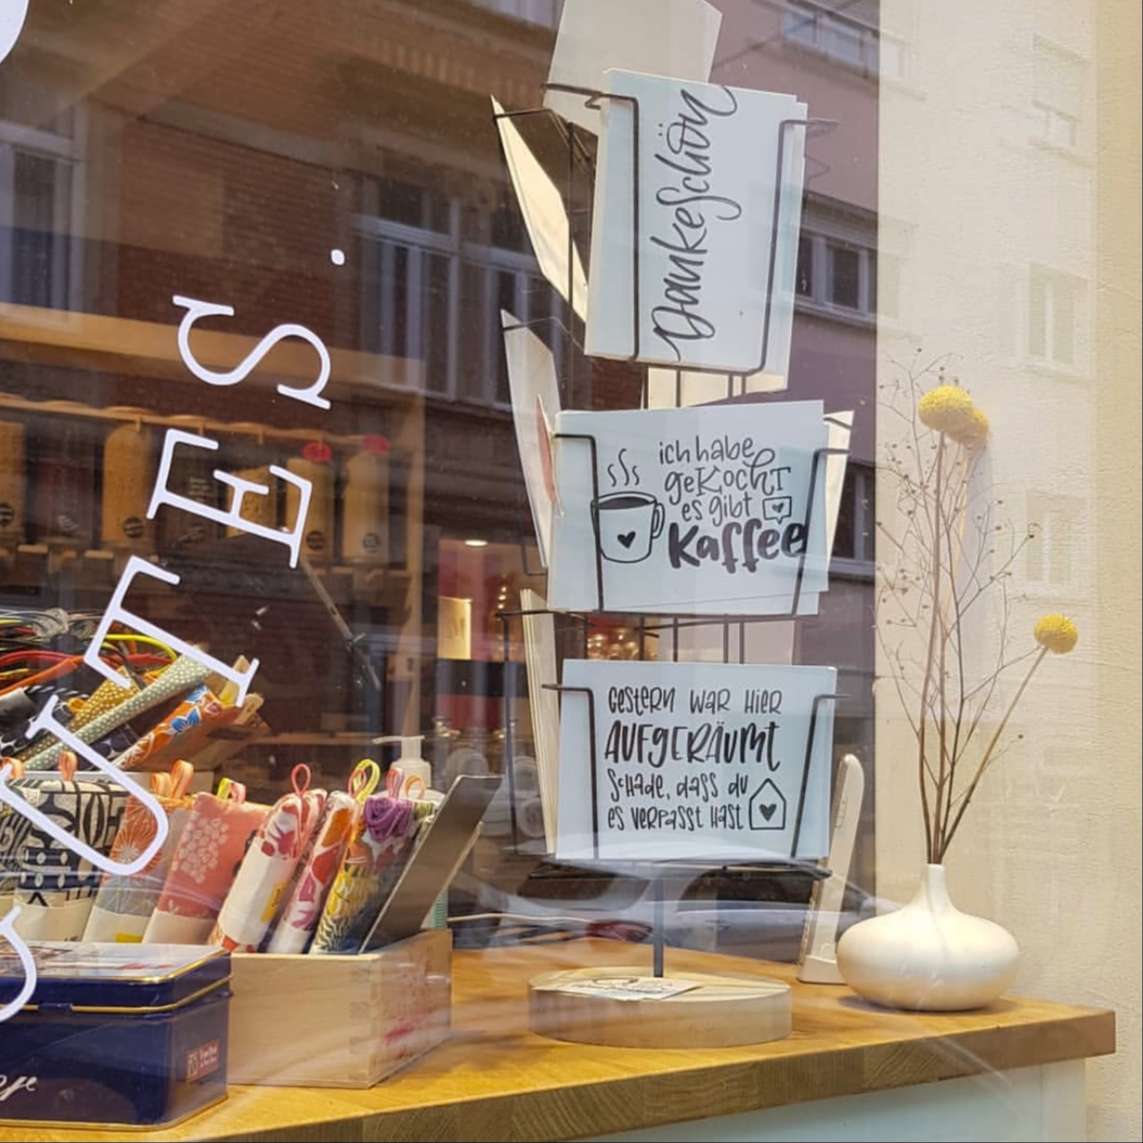 Dankeschön
ich habe
gekocht
es gibt
Kaffee
GESTERN WAR HIER
AUFGERÄUMT
SCHADE, dass du
es verpasst hast
UTES.